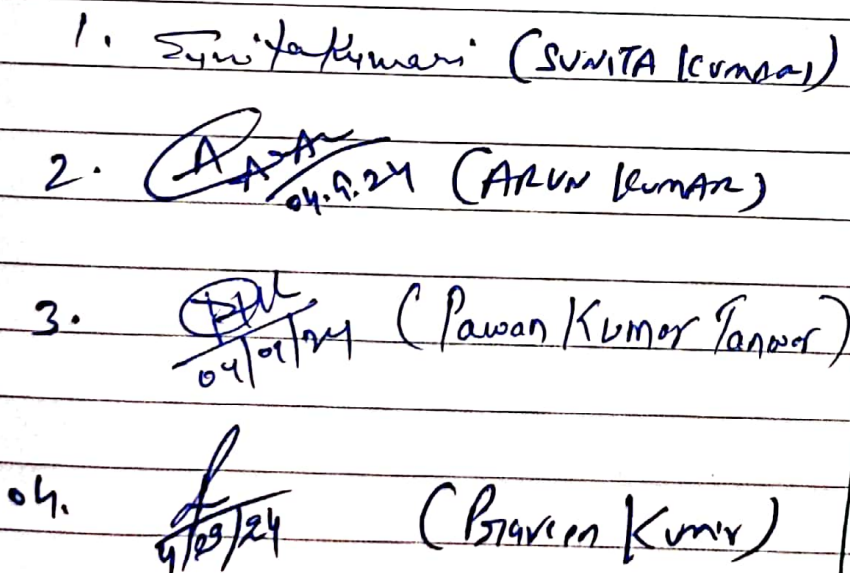 1. Sunita Kumari (SUNITA KUMARI)
2. 04.9.24 (ARUN KUMAR)
3. 04/09/24 (Pawan Kumar Tanwar)
04. 4/09/24 (Praveen Kumar)